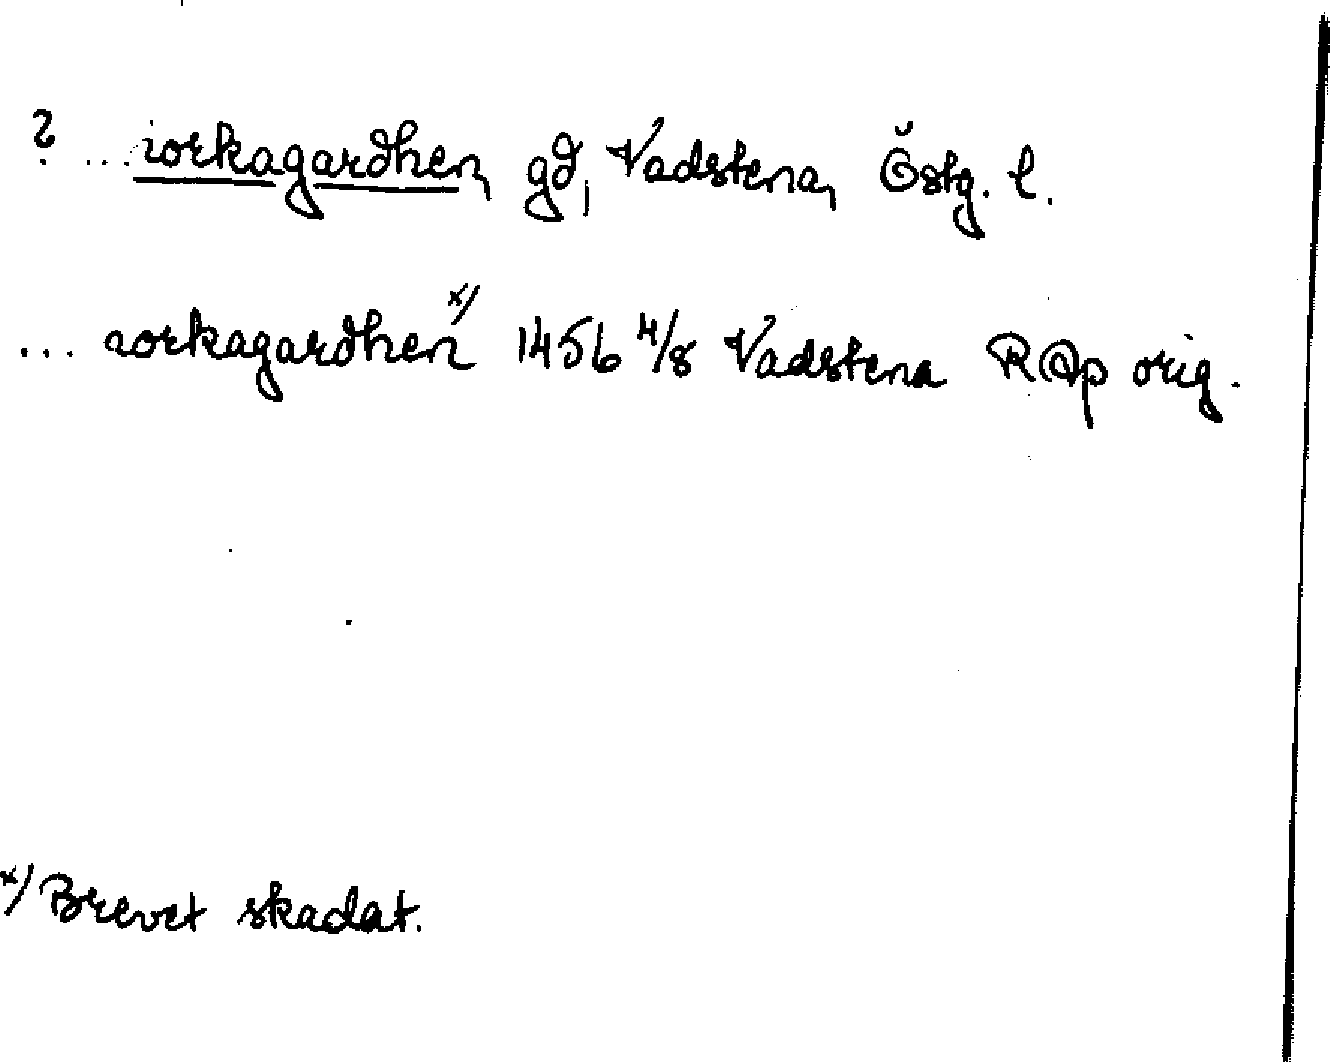 ? ... iorkagardhen, gd, Vadstena, Östg. l.
... iorkagardhen x/ 1456 4/8 Vadstena RAp orig.
x/ Brevet skadat.